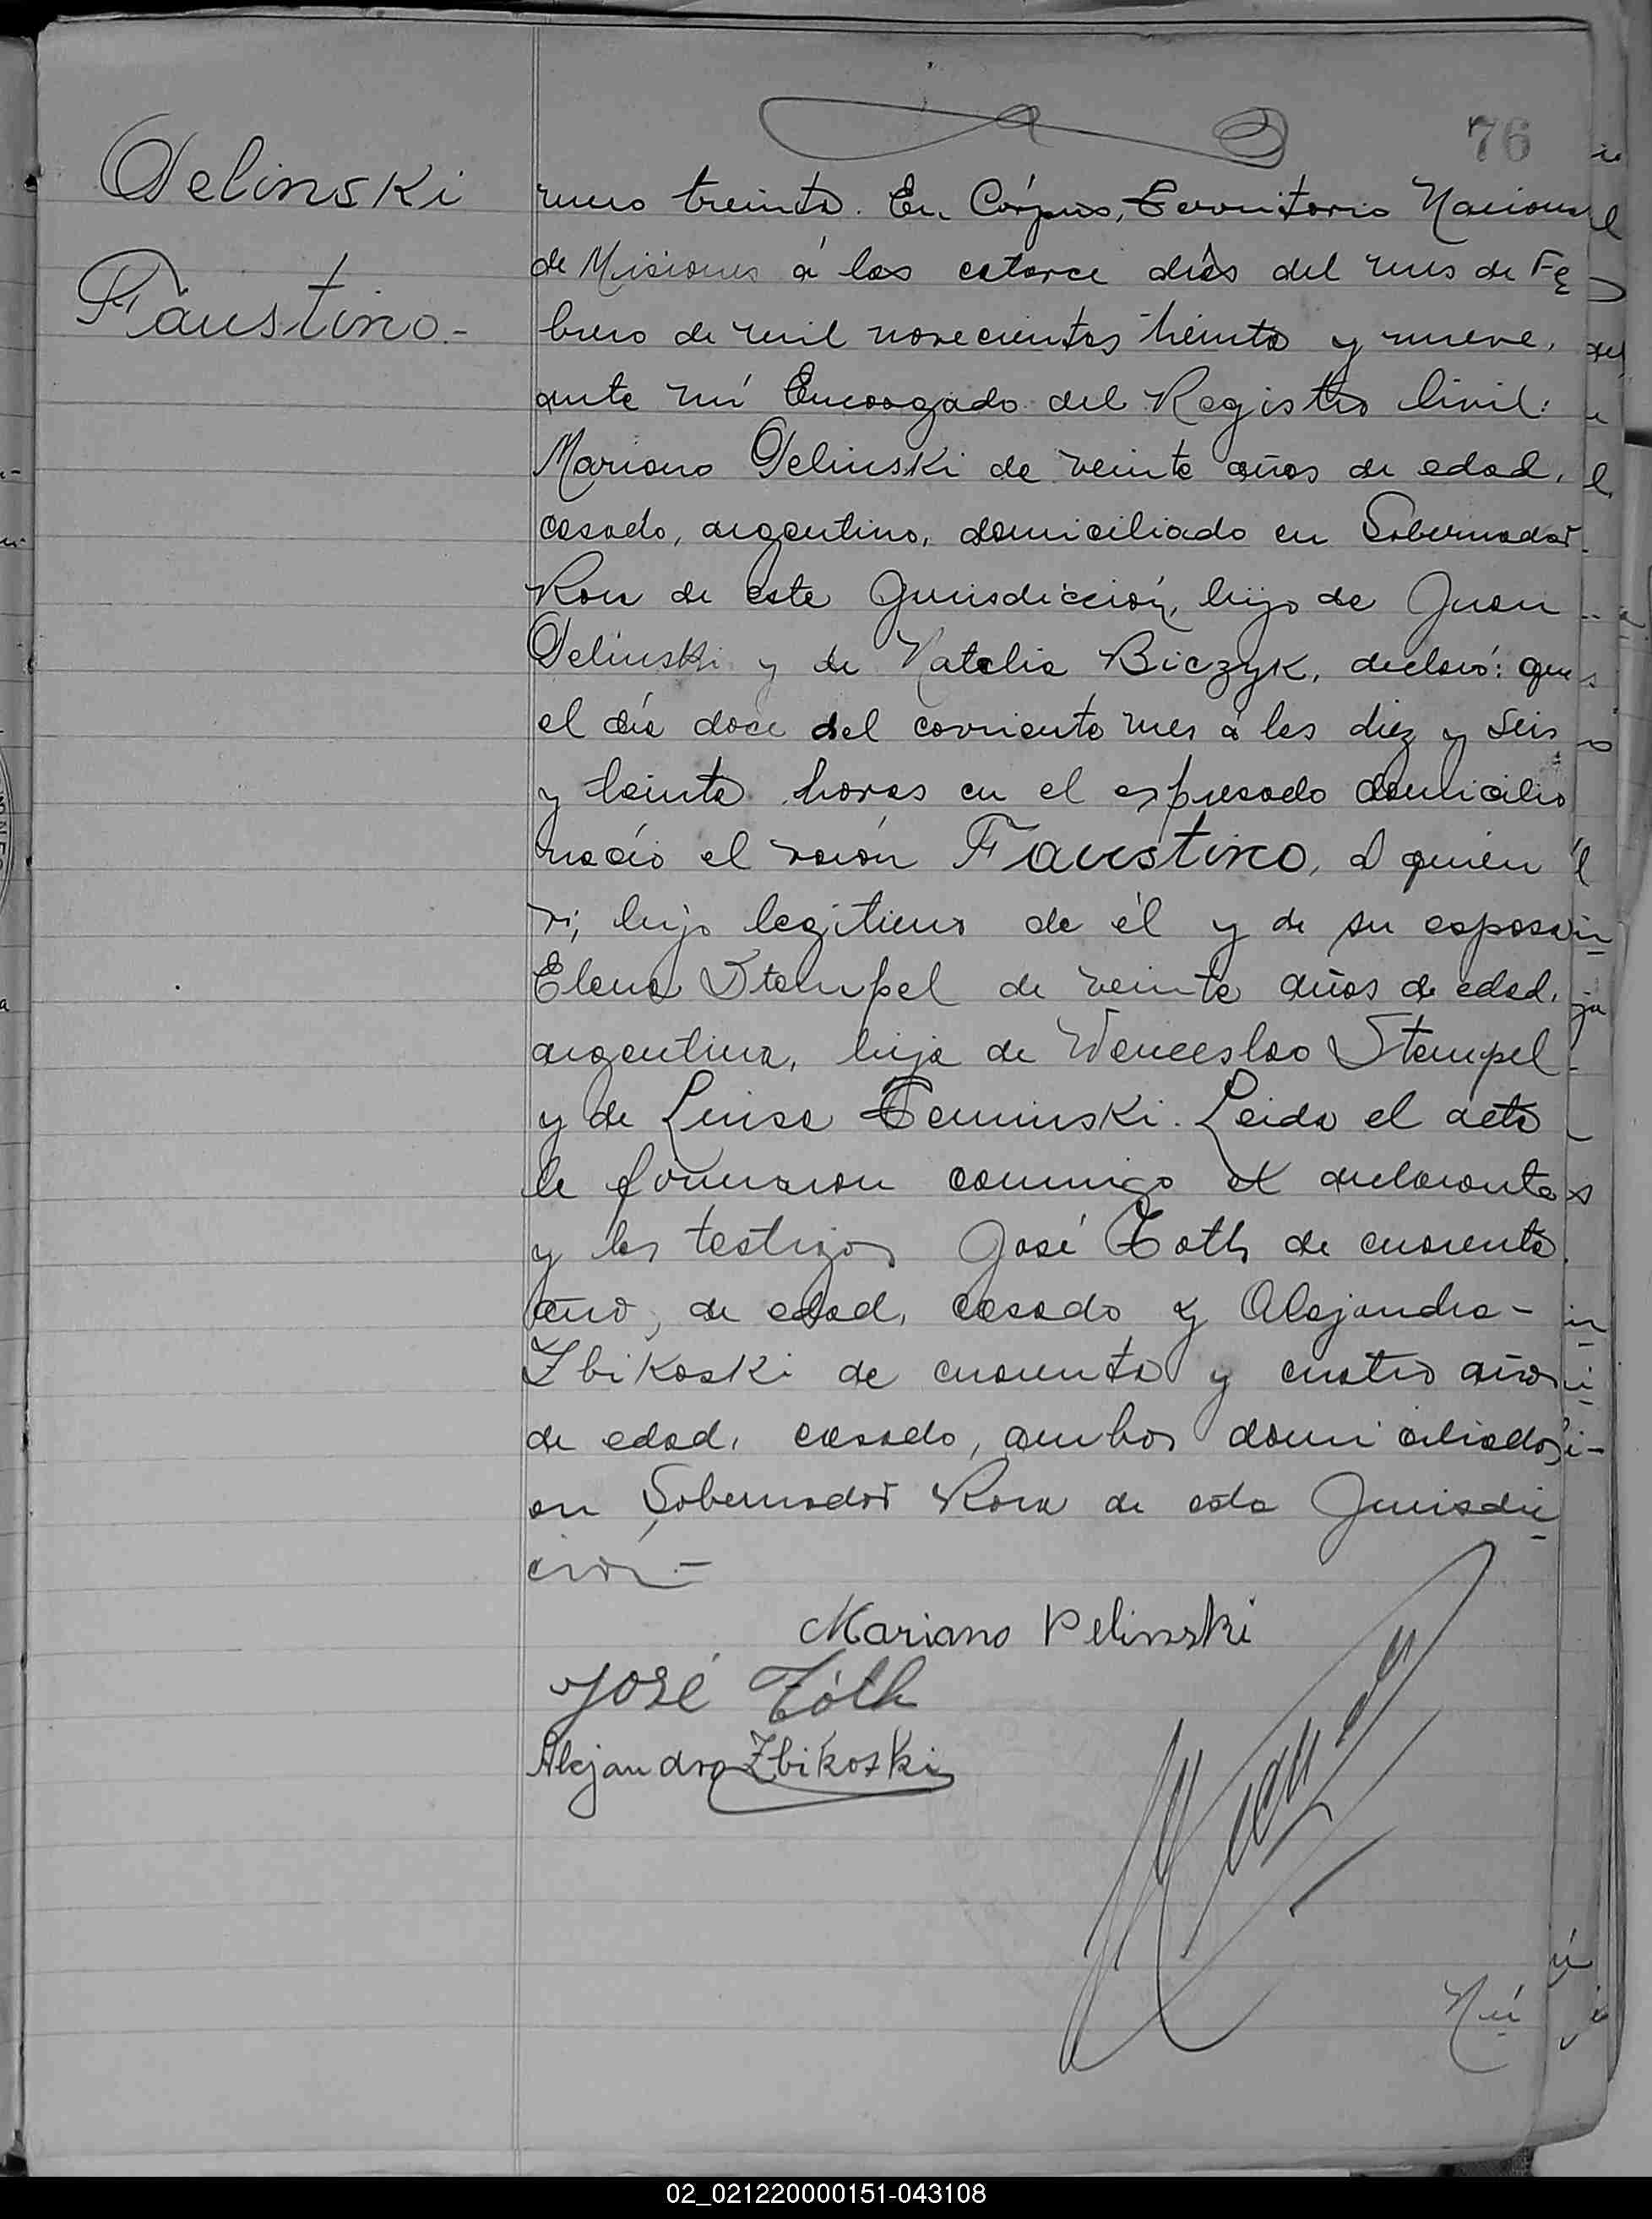 76
Pelinski
Faustino.-
mero treinta. En Córpus, Territorio Nacional
de Misiones á los catorce días del mes de Fe
brero de mil novecientos treinta y nueve,
ante mí Encargado del Registro Civil:
Mariano Pelinski de veinte años de edad,
casado, argentino, domiciliado en Gobernador
Roca de esta Jurisdicción, hijo de Juan
Pelinski y de Natalia Biczyk, declaró: que
el día doce del corriente mes á las diez y seis
y treinta horas en el espresado domicilio
nació el varón Faustino, á quien
ví, hijo legítimo de él y de su esposa
Elena Stempel de veinte años de edad,
argentina, hija de Wenceslao Stempel
y de Luisa Teminski. Leida el acta
la firmaron conmigo el declarante
y los testigos José Toth de cuarenta
años, de edad, casado y Alejandro-
Zbikoski de cuarenta y cuatro años
de edad, casado, ambos domiciliados
en Gobernador Roca de esta Jurisdic
ción.-
Mariano Pelinski
José Tóth
Alejandro Zbikoski
Nú
02_021220000151-043108